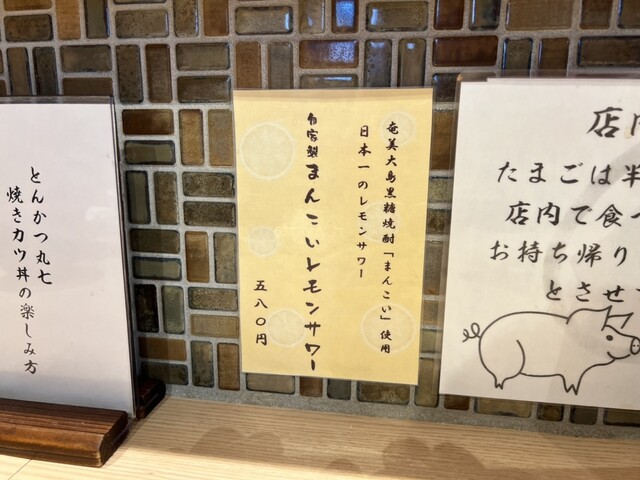 とんかつ丸七
焼きカツ丼の楽しみ方
奄美大島黒糖焼酎「まんこい」使用
日本一のレモンサワー
自家製まんこいレモンサワー
五八〇円
店内
たまごは半
店内で食べ
お持ち帰り
とさせて